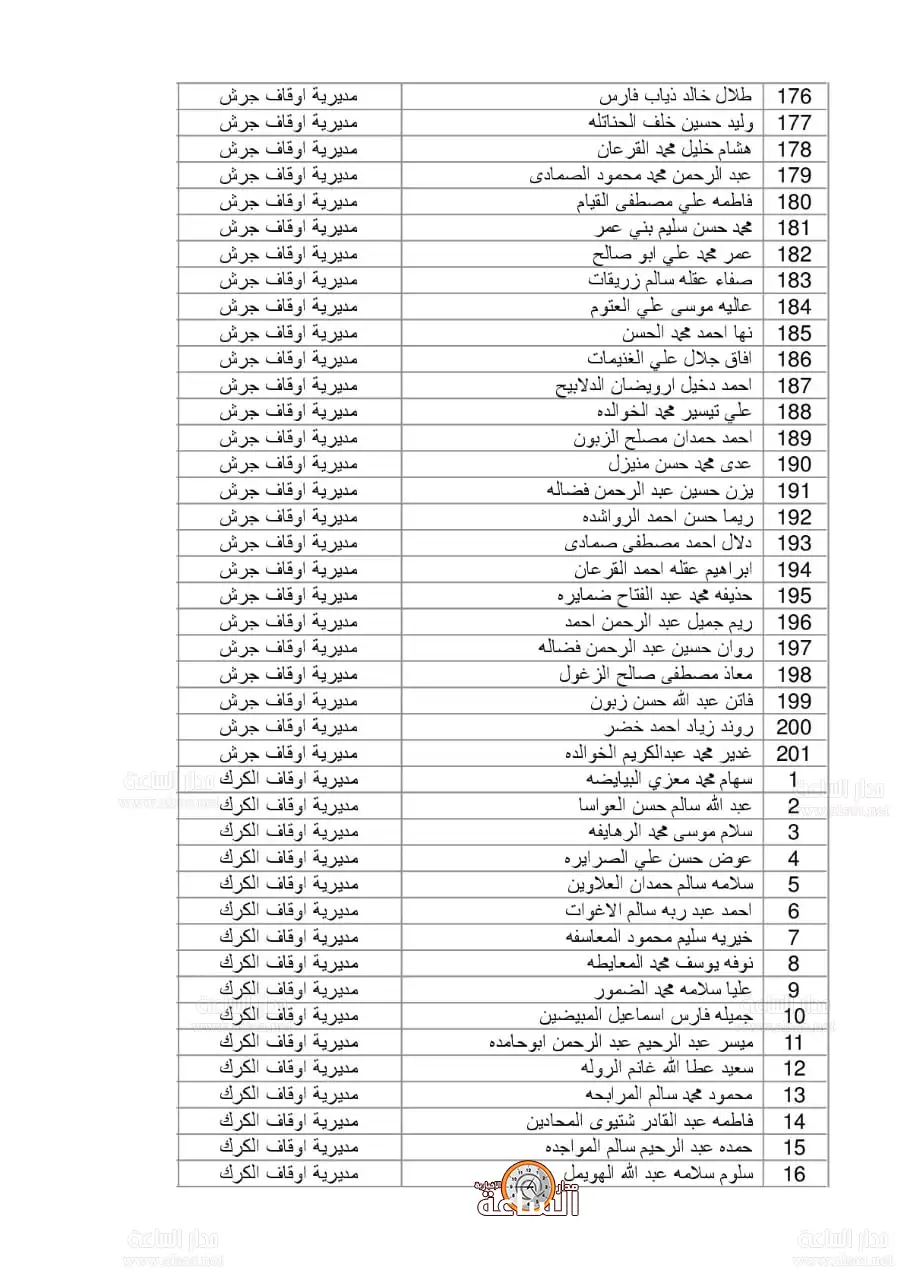 176 طلال خالد ذياب فارس مديرية اوقاف جرش
177 وليد حسين خلف الحناتله مديرية اوقاف جرش
178 هشام خليل محمد القرعان مديرية اوقاف جرش
179 عبد الرحمن محمد محمود الصمادى مديرية اوقاف جرش
180 فاطمه علي مصطفى القيام مديرية اوقاف جرش
181 محمد حسن سليم بني عمر مديرية اوقاف جرش
182 عمر محمد علي ابو صالح مديرية اوقاف جرش
183 صفاء عقله سالم زريقات مديرية اوقاف جرش
184 عاليه موسى علي العتوم مديرية اوقاف جرش
185 نها احمد محمد الحسن مديرية اوقاف جرش
186 افاق جلال علي الغنيمات مديرية اوقاف جرش
187 احمد دخيل ارويضان الدلابيح مديرية اوقاف جرش
188 علي تيسير محمد الخوالده مديرية اوقاف جرش
189 احمد حمدان مصلح الزبون مديرية اوقاف جرش
190 عدى محمد حسن منيزل مديرية اوقاف جرش
191 يزن حسين عبد الرحمن فضاله مديرية اوقاف جرش
192 ريما حسن احمد الرواشده مديرية اوقاف جرش
193 دلال احمد مصطفى صمادى مديرية اوقاف جرش
194 ابراهيم عقله احمد القرعان مديرية اوقاف جرش
195 حذيفه محمد عبد الفتاح ضمايره مديرية اوقاف جرش
196 ريم جميل عبد الرحمن احمد مديرية اوقاف جرش
197 روان حسين عبد الرحمن فضاله مديرية اوقاف جرش
198 معاذ مصطفى صالح الزغول مديرية اوقاف جرش
199 فاتن عبد الله حسن زبون مديرية اوقاف جرش
200 روند زياد احمد خضر مديرية اوقاف جرش
201 غدير محمد عبدالكريم الخوالده مديرية اوقاف جرش
1 سهام محمد معزي البيايضه مديرية اوقاف الكرك
2 عبد الله سالم حسن العواسا مديرية اوقاف الكرك
3 سلام موسى محمد الرهايفه مديرية اوقاف الكرك
4 عوض حسن علي الصرايره مديرية اوقاف الكرك
5 سلامه سالم حمدان العلاوين مديرية اوقاف الكرك
6 احمد عبد ربه سالم الاغوات مديرية اوقاف الكرك
7 خيريه سليم محمود المعاسفه مديرية اوقاف الكرك
8 نوفه يوسف محمد المعايطه مديرية اوقاف الكرك
9 عليا سلامه محمد الضمور مديرية اوقاف الكرك
10 جميله فارس اسماعيل المبيضين مديرية اوقاف الكرك
11 ميسر عبد الرحيم عبد الرحمن ابوحامده مديرية اوقاف الكرك
12 سعيد عطا الله غانم الروله مديرية اوقاف الكرك
13 محمود محمد سالم المرابحه مديرية اوقاف الكرك
14 فاطمه عبد القادر شتيوى المحادين مديرية اوقاف الكرك
15 حمده عبد الرحيم سالم المواجده مديرية اوقاف الكرك
16 سلوم سلامه عبد الله الهويمل مديرية اوقاف الكرك
مدار الساعة الإخبارية
مدار الساعة
مدار الساعة